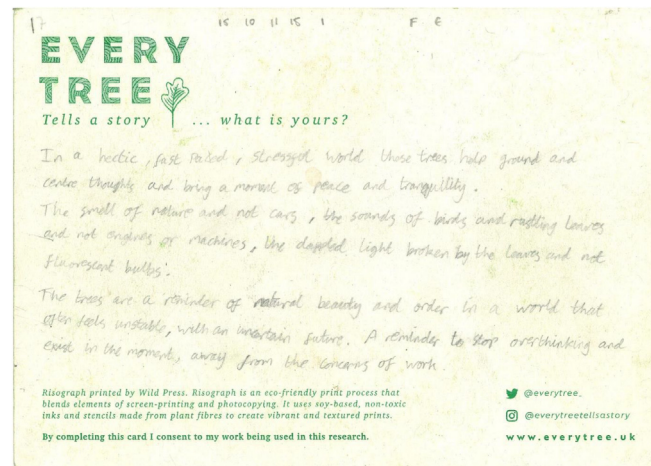 17 15 10 11 15 1 F E
EVERY
TREE
Tells a story ... what is yours?
In a hectic, fast paced, stressful world these trees help ground and
centre thoughts and bring a moment of peace and tranquility.
The smell of nature and not cars, the sounds of birds and rustling leaves
and not engines or machines, the dappled light broken by the leaves and not
fluorescent bulbs.
The trees are a reminder of natural beauty and order in a world that
often feels unstable, with an uncertain future. A reminder to stop overthinking and
exist in the moment, away from the concerns of work.
Risograph printed by Wild Press. Risograph is an eco-friendly print process that
blends elements of screen-printing and photocopying. It uses soy-based, non-toxic
inks and stencils made from plant fibres to create vibrant and textured prints.
By completing this card I consent to my work being used in this research.
@everytree_
@everytreetellsastory
www.everytree.uk